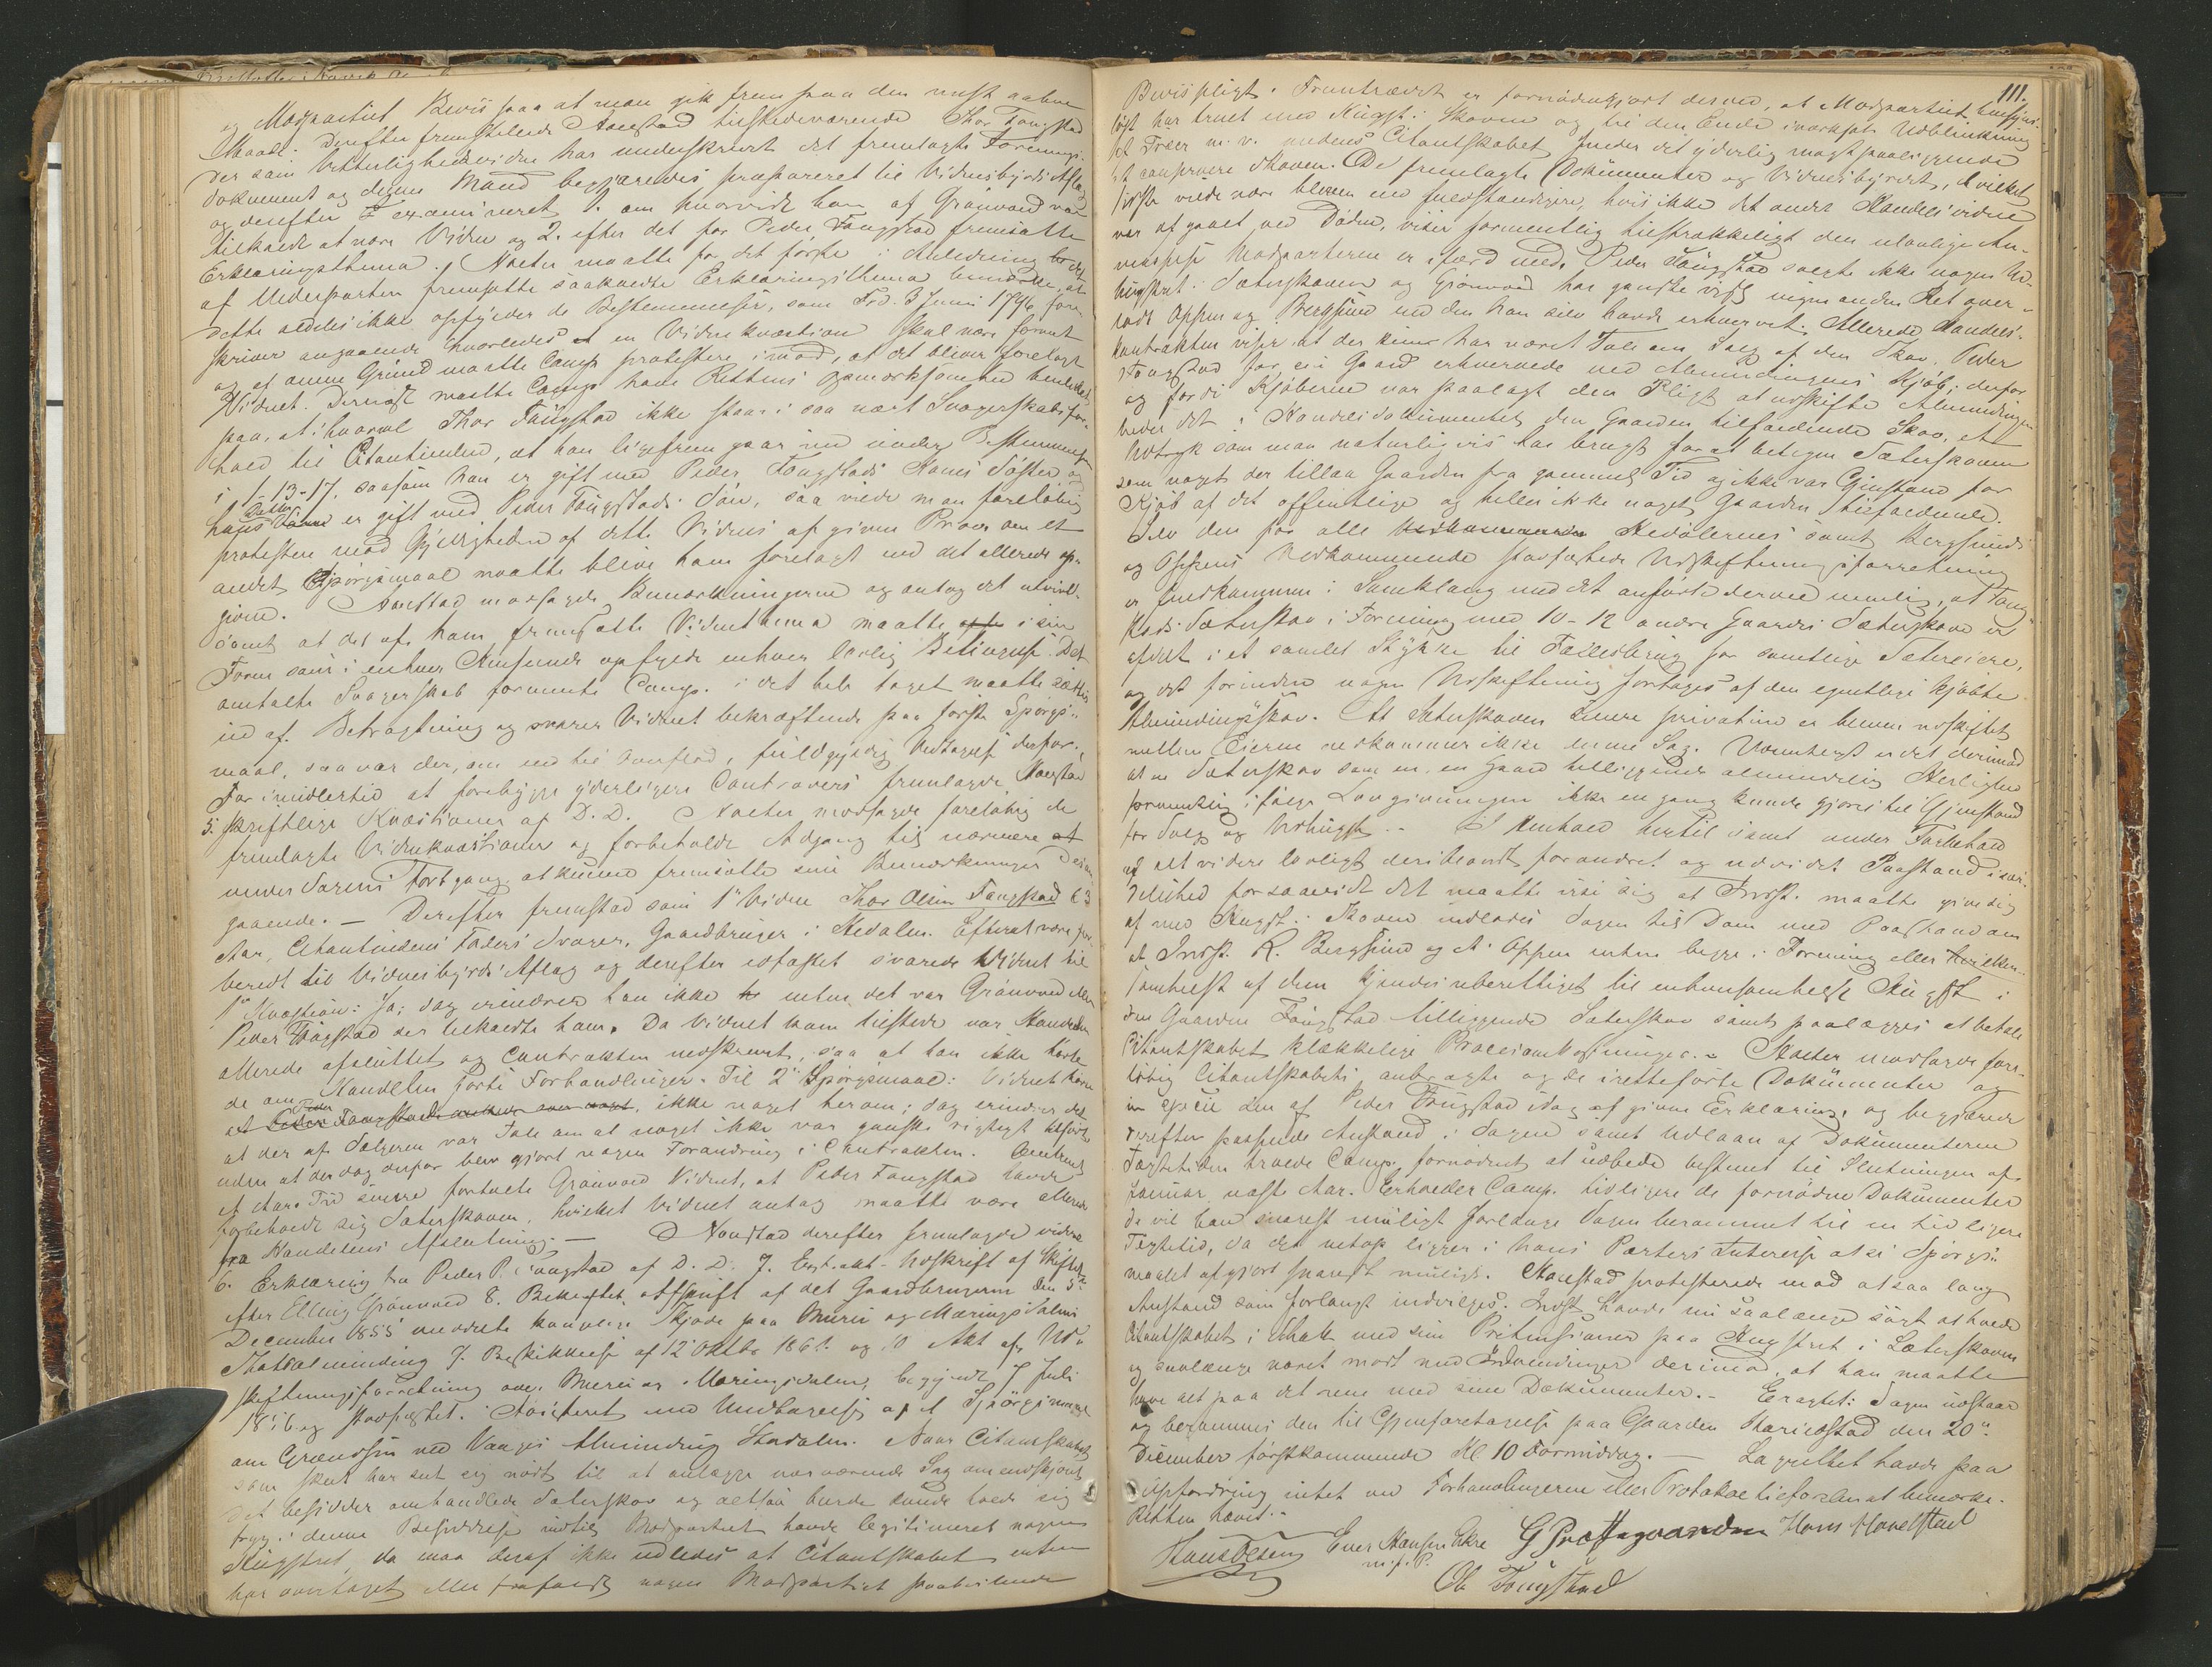 og Modpartiet Beviis paa at man gik frem paa den mest aabne
Maade. Derefter fremstillede Aanestad tilstedeværende Thor Fougstad
der som Vitterlighedsvidne har underskrevet det fremlagte Forenings-
dokument og denne Mand begjæredes præpareret til Vidnesbyrds Aflæg
og derefter examineret 1. om hvorvidt han af Grønvold var
tilkaldt at være Vidne og 2. efter det for Peder Fougstad fremsatte
Erklæringsthema. Naeter maatte for det første i Anledning
af Underparten fremsatte saakaldte Erklæringsthema bemærke, at
dette aldeles ikke opfylder de Bestemmelser, som Frd. 3 Juni 1796 fore-
skriver angaaende hvorledes en Vidne kvæstion skal være formet
og af denne Grund maatte Comp. protestere imod, at det bliver forelagt
Vidnet. Dernæst maatte Comp. have Rettens Opmærksomhed henledet
paa, at ihvorvel Thor Fougstad ikke staar i saa nært Svogerskabsfor-
hold til Citantinden, at han ligefrem gaar ind under Bestemmelsen
i 1-13-17, saasom han er gift med Peder Fougstads Kones Søster og
hans Datter er gift med Peder Fougstads Søn, saa vilde man foreløbig
protestere mod Gyldigheden af dette Vidnes afgivne Prov om et
andet Spørgsmaal maatte blive ham forelagt end det allerede op-
givne. Aanestad modsagde Bemærkningerne og antog det utvivl-
somt at det af ham fremsatte Vidnethema maatte i sin
Form som i enhver Henseende opfylde enhver lovlig Betingelse. Det
omtalte Svogerskab formente Comp. i det hele taget maatte sættes
ud af Betragtning og svarer Vidnet bekræftende paa første Spørgs-
maal, saa var der, om end til Overflod, fuldgyldig Vedtagelse derfor.
For imidlertid at forebygge yderligere Controvers fremlagde Aanestad
5. skriftlige Kvæstioner af D. D. Naeter modsagde foreløbig de
fremlagte Vidnekvæstioner og forbeholdt Adgang til nærmere
under Sagens Fortgang at kunne fremsætte sine Bemærkninger desan-
gaaende. — Derefter fremstod som 1ste Vidne Thor Olsen Fougstad 63
Aar, Citantindens Faders Svoger, Gaardbruger i Hedalen. Efterat være for-
beredt til Vidnesbyrds Aflæg og derefter edfæstet svarede Vidnet til
1ste Kvæstion: Ja; dog erindrer han ikke enten det var Grønvold eller
Peder Fougstad der tilkaldte ham. Da Vidnet kom tilstede var Handelen
allerede afsluttet og Contrakten nedskrevet, saa at han ikke hørte
de om Handelen førte Forhandlinger. Til 2det Spørgsmaal: Vidnet hørte
ikke noget herom; dog erindrer det
at der af Sælgeren var Tale om at noget ikke var ganske rigtigt
uden at der dog derfor blev gjort nogen Forandring i Contrakten. Omtrent
et Aars Tid senere fortalte Grønvold Vidnet, at Peder Fougstad havde
forbeholdt sig Sæterskoven, hvilket Vidnet antog maatte være allerede
fra Handelens Afslutning. — Aanestad derefter fremlagde videre
6. Erklæring fra Peder P. Fougstad af D. D. 7. Extrakt-Udskrift af Skiftet
efter Elling Grønvold 8. Bekræftet Afskrift af det Gaardbrugerne den 5te
December 1855 meddelte kongelige Skjøde paa Muren og Mæringsdalens
Statsalminding 9. Beskikkelse af 12 Oktbr 1861. og 10 Akt af Ud-
skiftningsforretning over Muren og Mæringsdalen, begyndt 7 Juli
1856 og stadfæstet. Citeret med Undtagelse af et Spørgsmaal
om Grændsen ved Vangs Almindig Hedalen. Naar Citantskabet
som skeet har seet sig nødt til at anlægge nærværende Sag omendskjønt
det besidder omhandlede Sæterskov og altsaa burde kunde holde sig
tryg i denne Besiddelse indtil Modpartiet havde legitimeret nogen
Hugstret, da maa deraf ikke udledes at Citantskabet enten
har overtaget eller frafaldt nogen Modpartiet paahvilende
111.
Bevispligt. Fremtrædet er fornødengjort derved, at Modpartiet
løst har truet med Hugst i Skoven og til den Ende iværksat Udblinkning
af Træer m. v. medens Citantskabet finder det yderlig magtpaaliggende
at conservere Skoven. De fremlagte Dokumenter og Vidnesbyrdet, hvilket
sidste vilde være bleven end fuldstændigere, hvis ikke det andet Handelsvidne
var afgaaet ved Døden, viser formentlig tilstrækkeligt den ulovlige An-
masselse Modparterne er ifærd med. Peder Fougstad solgte ikke nogen
Hugstret i Sæterskoven og Grønvold har ganske vist ingen anden Ret over-
ladt Oppen og Bergsund end den han selv havde erhvervet. Allerede Handels-
kontrakten viser at der kun har været Tale om Salg af den Skov, Peder
Fougstad for sin Gaard erhvervede ved Almindingens Kjøb; derfor
og fordi Kjøberne var paalagt den Pligt at udskifte Almindingen
heder det i Handelsdokumentet den Gaarden tilfaldende Skov, et
Udtryk som man naturligvis ikke har brugt for at betegne Sæterskoven
som noget der tillaa Gaarden fra gammel Tid og ikke var Gjenstand for
Kjøb af det offentlige og heller ikke noget Gaarden tilfaldende.
Selv den for alle Hedølernes samt Bergsunds
og Oppens Vedkommende stadfæstede Udskiftningsforretning
er fremkommen i Samklang med det anførte derved nemlig, at Foug-
stads Sæterskov i Forening med 10-12 andre Gaardes Sæterskove er
afdelt i et samlet Stykke til Fællesbrug for samtlige Sætereiere,
og det forinden nogen Udskiftning foretoges af den egentlige kjøbte
Almindingsskov. At Sæterskoven senere privatim er bleven udskiftet
mellem Eierne vedkommer ikke denne Sag. Uomtvist er det derimod
at en Sæterskov som en en Gaard tilliggende almindelig Herlighed
formentlig ifølge Lovgivningen ikke en gang kunde gjøres til Gjenstand
for Salg og Udhugst. — I Henhold hertil samt under Forbehold
af alt videre lovligt deriblandt forandret og udvidet Paastand i sær-
delished forsaavidt det maatte vise sig at Indst. maatte give sig
af med Hugst i Skoven indlodes Sagen til Dom med Paastand om
at Indst. K. Bergsund og A. Oppen enten begge i Forening eller hvilken-
somhelst af dem kjendes uberettiget til enhversomhelst Hugst i
den Gaarden Fougstad tilliggende Sæterskov samt paalægges at betale
Citantskabet klækkelige Procesomkostninger. — Naeter modsagde fore-
løbig Citantskabets anbragte og de iretteførte Dokumenter og
in specie den af Peder Fougstad idag afgivne Erklæring, og begjærede
derefter passende Anstand i Sagen samt Udlaan af Dokumenterne
Tægtetiden troede Comp. fornødent at udbede bestemt til Slutningen af
Januar næste Aar. Erholder Comp. tidligere de fornødne Dokumenter
da vil han snarest muligt forlange Sagen berammet til en tidligere
Tægtetid, da det netop ligger i hans Parters Interesse at se Spørgs-
maalet afgjort snarest muligt. Aanestad protesterede mod at saa lang
Anstand som forlangt indvilges. Indst. havde nu saalænge søgt at holde
Citantskabet i Skak med sine Prætensioner paa Hugstret i Sæterskoven
og saalænge været mødt med Indvendinger derimod, at han maatte
have alt paa det rene med sine Dokumenter. — Eragtet: Sagen udstaar
og berammes den til Gjenforetagelse paa Gaarden Skaristad den 20de
December førstkommende Kl. 10 Formiddag. — Lagrettet havde paa
Opfordring intet ved Forhandlingerne eller Protokoltilførslen at bemærke.
Retten hævet. —
Hans Olsen Ener Hansen Ekre G Prestegaarden Hans Havelstad
m. f. P.
Ole Fougstad